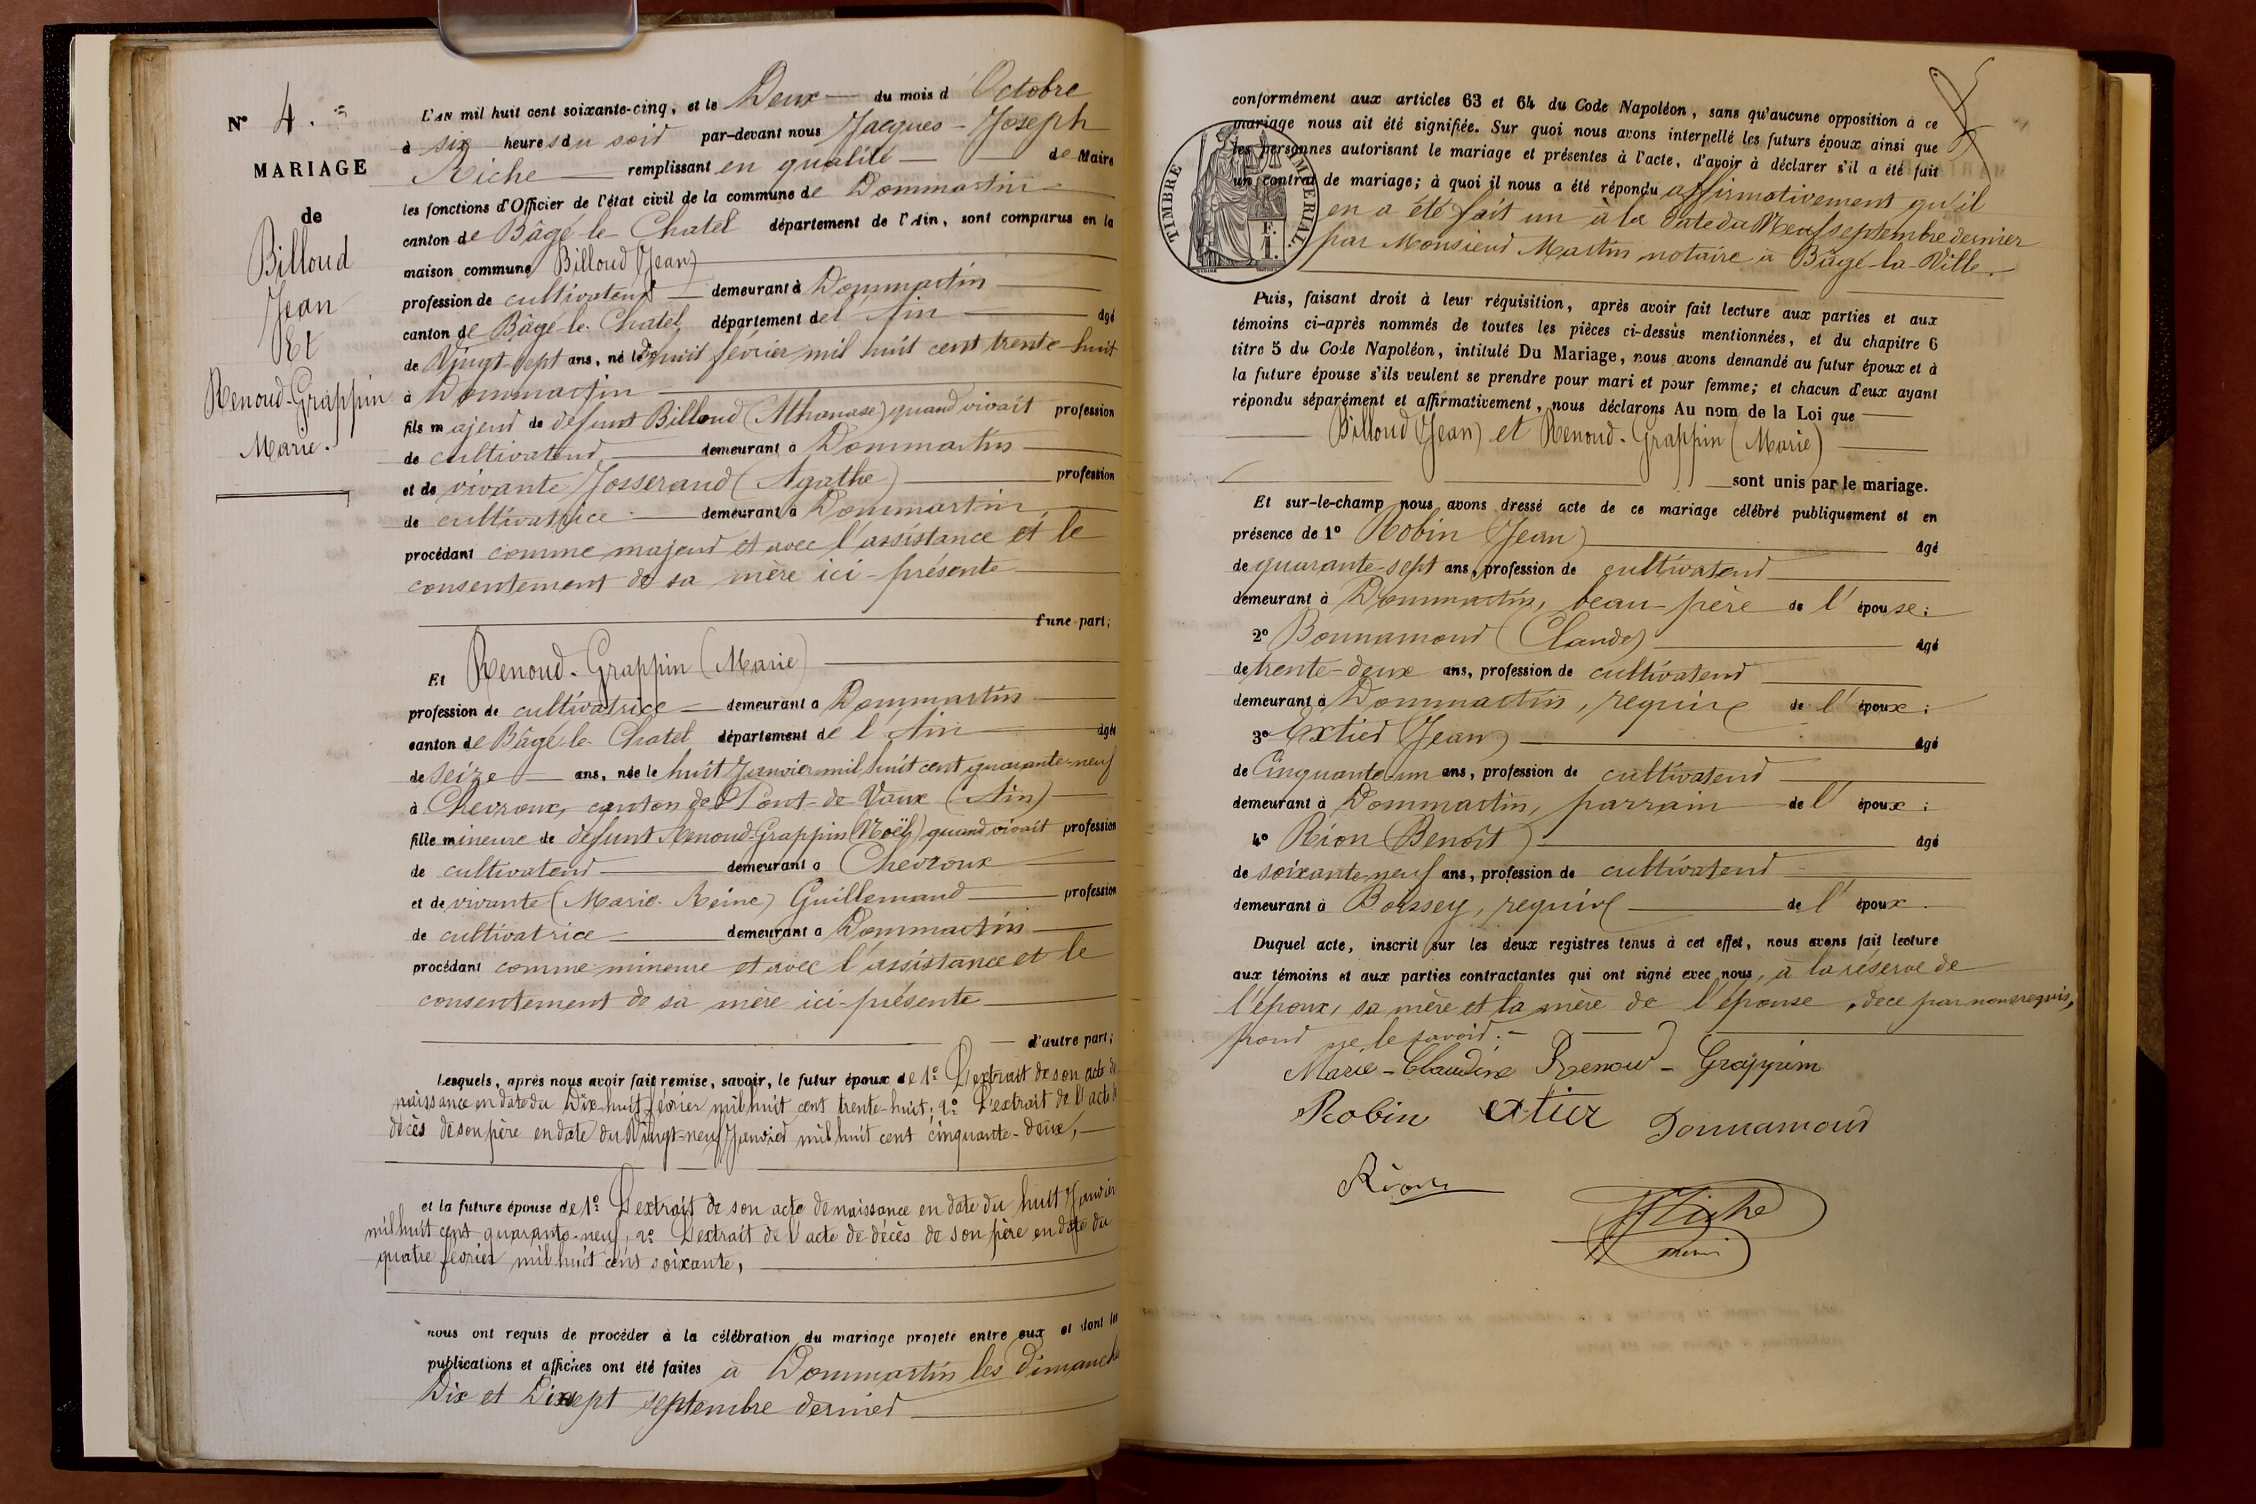 N° 4.
MARIAGE
de
Billoud
Jean
Et
Renoud-Grappin
Marie.
L'AN mil huit cent soixante-cinq, et le Deux du mois d'Octobre
à six heures du soir par-devant nous Jacques-Joseph
Riche remplissant en qualité de Maire
les fonctions d'Officier de l'état civil de la commune de Dommartin
canton de Bâgé-le-Chatel département de l'Ain, sont comparus en la
maison commune Billoud (Jean)
profession de cultivateur demeurant à Dommartin
canton de Bâgé-le-Chatel, département de l'Ain âgé
de Vingt-sept ans, né le dix huit février mil huit cent trente-huit
à Dommartin
fils majeur de défunt Billoud (Athanase) quand vivait profession
de cultivateur demeurant à Dommartin
et de vivante Josserand (Agathe) profession
de cultivatrice demeurant à Dommartin,
procédant comme majeur et avec l'assistance et le
consentement de sa mère ici-présente
d'une part;
Et Renoud-Grappin (Marie)
profession de cultivatrice demeurant à Dommartin
canton de Bâgé-le-Chatel département de l'Ain âgée
de seize ans, née le huit Janvier mil huit cent quarante-neuf
à Chevroux, canton de Pont-de-Vaux (Ain)
fille mineure de défunt Renoud-Grappin (Noël) quand vivait profession
de cultivateur demeurant à Chevroux
et de vivante (Marie-Reine) Guillemaud profession
de cultivatrice demeurant à Dommartin
procédant comme mineure et avec l'assistance et le
consentement de sa mère ici-présente
d'autre part;
Lesquels, après nous avoir fait remise, savoir, le futur époux de 1° L'extrait de son acte de
naissance en date du Dix-huit février mil huit cent trente-huit; 2° L'extrait de l'acte de
décès de son père en date du Vingt-neuf Janvier mil huit cent cinquante-deux,
et la future épouse de 1° L'extrait de son acte de naissance en date du huit Janvier
mil huit cent quarante-neuf, 2° L'extrait de l'acte de décès de son père en date du
quatre février mil huit cent soixante,
nous ont requis de procéder à la célébration du mariage projeté entre eux et dont les
publications et affiches ont été faites à Dommartin les Dimanches
Dix et Dix sept septembre dernier
conformément aux articles 63 et 64 du Code Napoléon, sans qu'aucune opposition à ce
mariage nous ait été signifiée. Sur quoi nous avons interpellé les futurs époux ainsi que
les personnes autorisant le mariage et présentes à l'acte, d'avoir à déclarer s'il a été fait
un contrat de mariage; à quoi il nous a été répondu affirmativement qu'il
en a été fait un à la date du Neuf septembre dernier
par Monsieur Martin notaire à Bâgé-la-Ville.
TIMBRE IMPERIAL.
1 F.
Puis, faisant droit à leur réquisition, après avoir fait lecture aux parties et aux
témoins ci-après nommés de toutes les pièces ci-dessus mentionnées, et du chapitre 6
titre 5 du Code Napoléon, intitulé Du Mariage, nous avons demandé au futur époux et à
la future épouse s'ils veulent se prendre pour mari et pour femme; et chacun d'eux ayant
répondu séparément et affirmativement, nous déclarons Au nom de la Loi que
Billoud (Jean) et Renoud-Grappin (Marie)
sont unis par le mariage.
Et sur-le-champ nous avons dressé acte de ce mariage célébré publiquement et en
présence de 1° Robin (Jean) âgé
de quarante-sept ans, profession de cultivateur
demeurant à Dommartin, beau-père de l'épouse;
2° Bonnamour (Claude) âgé
de trente-deux ans, profession de cultivateur
demeurant à Dommartin, requis de l'époux;
3° Extier (Jean) âgé
de Cinquante-un ans, profession de cultivateur
demeurant à Dommartin, parrain de l'époux;
4° Rion (Benoît) âgé
de soixante-neuf ans, profession de cultivateur
demeurant à Boissey, requis de l'époux.
Duquel acte, inscrit sur les deux registres tenus à cet effet, nous avons fait lecture
aux témoins et aux parties contractantes qui ont signé avec nous, à la réserve de
l'époux, sa mère et la mère de l'épouse, de ce par nous requis,
pour ne le savoir.
Marie-Claudine Renoud-Grappin
Robin extier Bonnamour
Rion
Riche